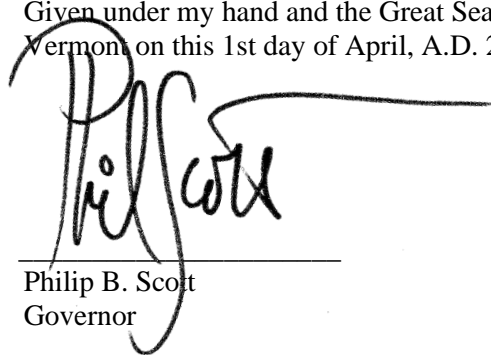 Given under my hand and the Great Sea
Vermont on this 1st day of April, A.D. 2
Phil Scott
Philip B. Scott
Governor